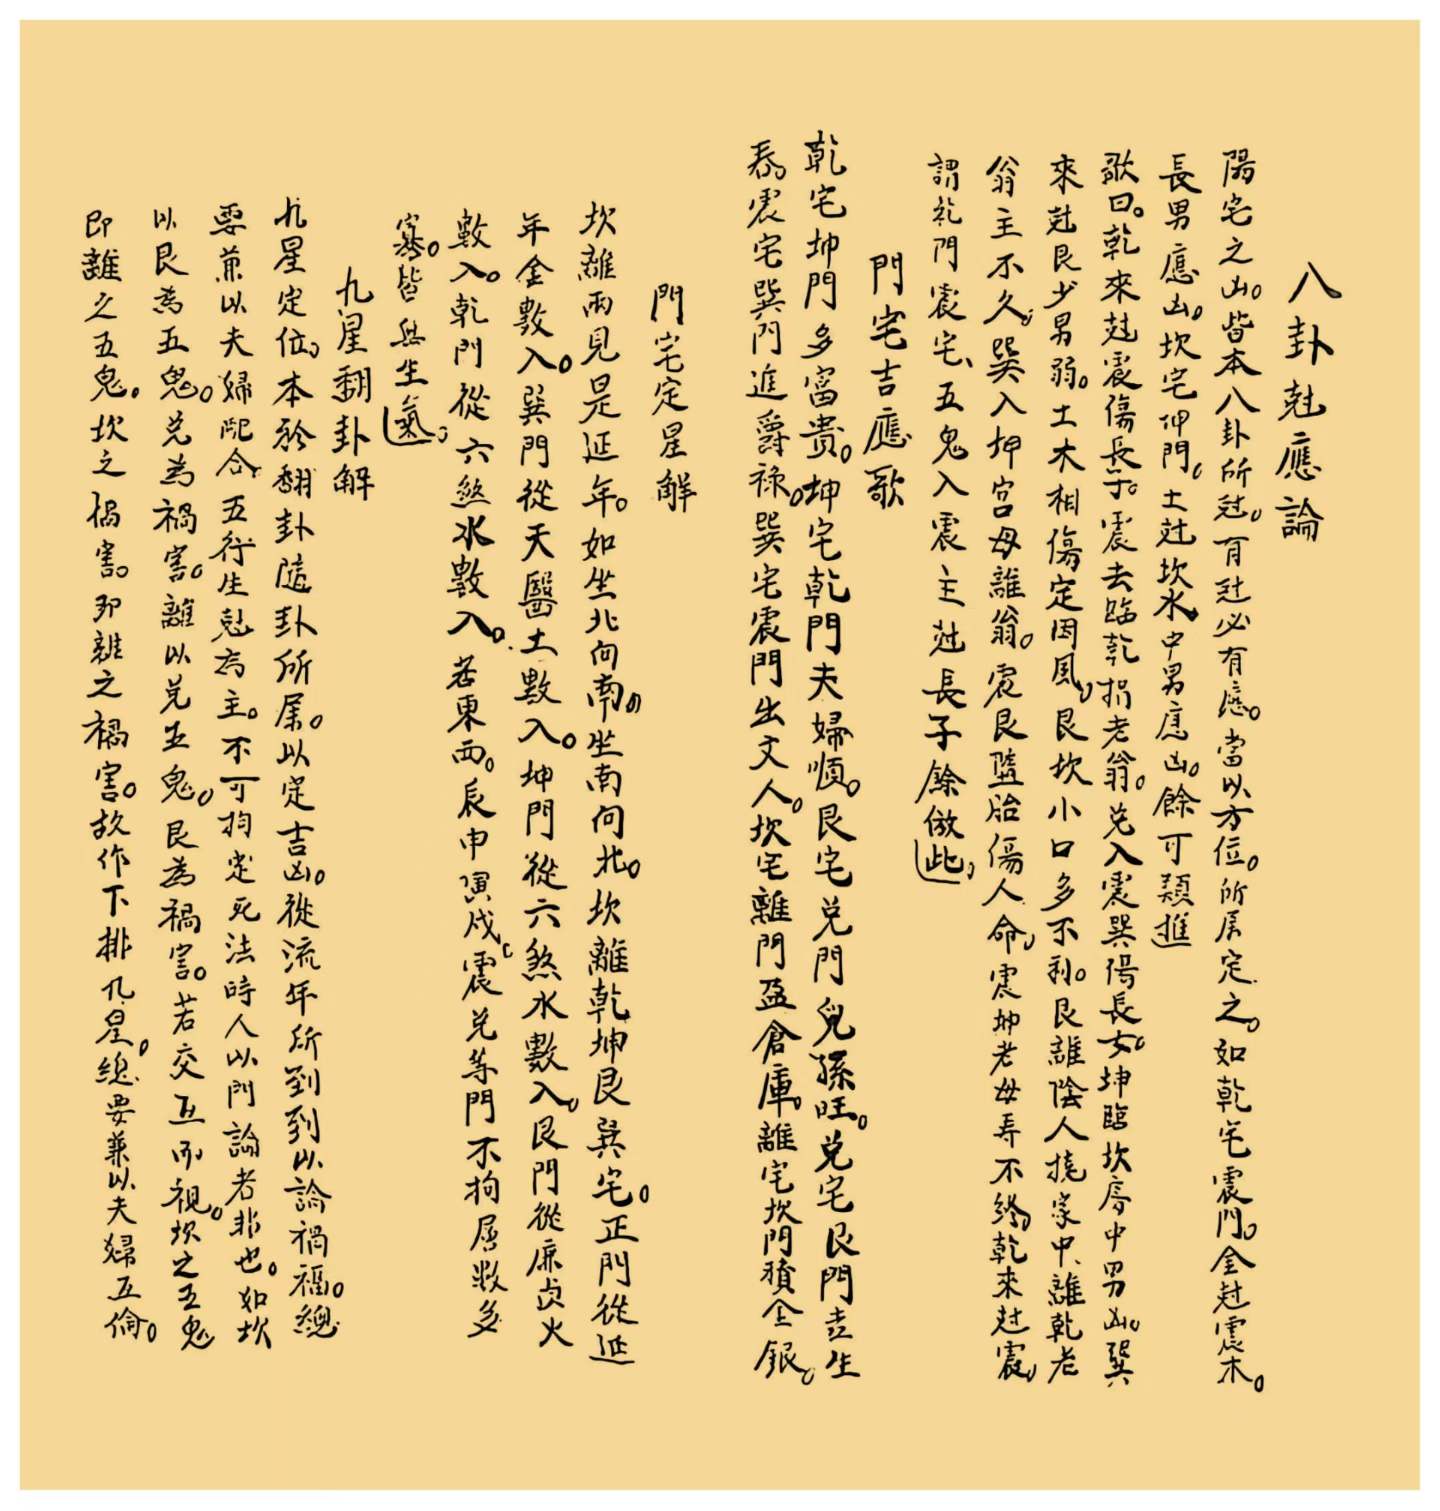 八卦尅應論
陽宅之凶。皆本八卦所尅。有尅必有應。當以方位。所屬定之。如乾宅震門。金尅震木。
長男應凶。坎宅坤門。土尅坎水。中男應凶。餘可類推
歌曰。乾來尅震傷長子。震去臨乾損老翁。兌入震巽傷長女。坤臨坎房中男凶。巽
來尅艮少男弱。土木相傷定因風。艮坎小口多不利。艮離陰人撓家中、離乾老
翁主不久。巽入坤宮母離翁。震艮墮胎傷人命。震坤老母壽不終。乾來尅震。
謂乾門震宅、五鬼入震主尅長子餘倣此。
門宅吉應歌
乾宅坤門多富貴。坤宅乾門夫婦順。艮宅兌門兒孫旺。兌宅艮門喜生
泰。震宅巽門進爵祿。巽宅震門出文人。坎宅離門盈倉庫。離宅坎門積金銀。
門宅定星解
坎離兩見是延年。如坐北向南。坐南向北。坎離乾坤艮巽宅。正門從延
年金數入。巽門從天醫土數入。坤門從六煞水數入。艮門從廉貞火
數入。乾門從六煞水數入。若東西。辰申寅戌。震兌等門不拘層數多
寡。皆與生氣。
九星翻卦解
九星定位。本於翻卦隨卦所屬。以定吉凶。從流年所到到以論禍福。總
要兼以夫婦配合。五行生尅為主。不可拘定死法時人以門論者非也。如坎
以艮為五鬼。兌為禍害。離以兌五鬼。艮為禍害。若交互而視。坎之五鬼
即離之五鬼。坎之禍害。即離之禍害。故作下排九星。總要兼以夫婦五倫。